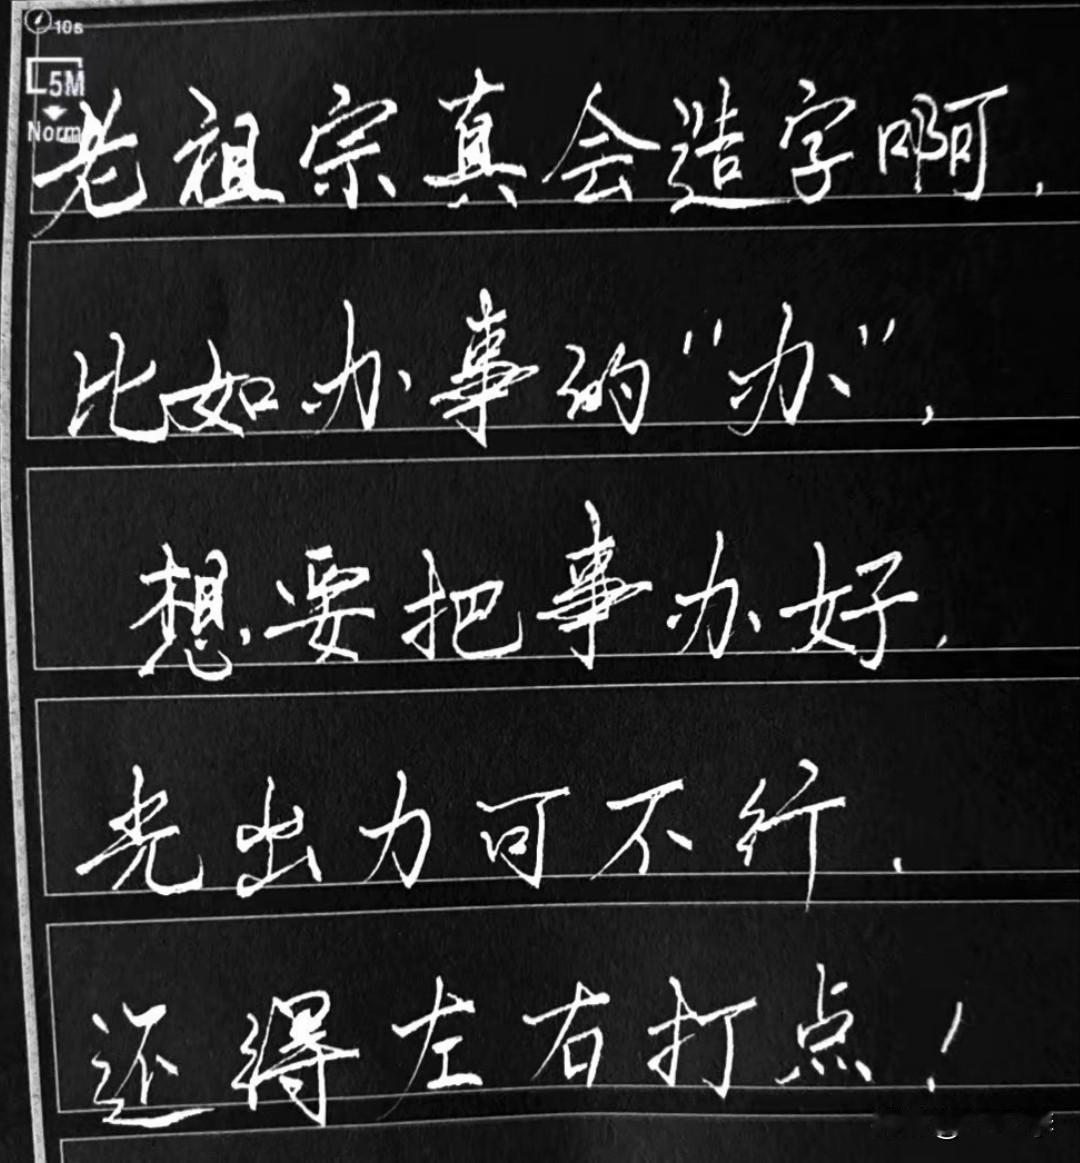 10s
5M
Norm
老祖宗真会造字啊，
比如办事的"办"，
想要把事办好，
光出力可不行，
还得左右打点！